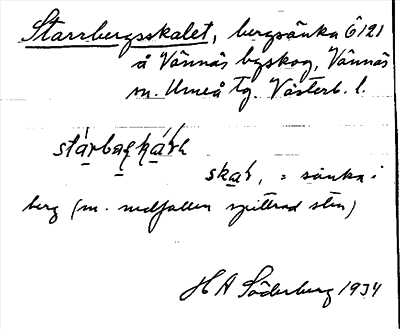 Starrbergsskalet, bergsänka Ö 121
å Vännäs byskog, Vännäs
m. Umeå tg. Västerb. l.
skaɫ, = sänka i
berg (m. nedfallen splittrad sten)
H A Söderberg 1934